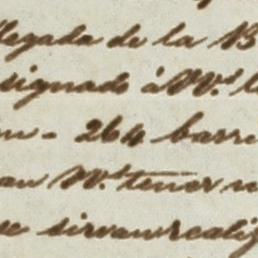 llegada de la B
signado á VV.s l
n - 264 barri
an VV.s tener
se sirvan realiz